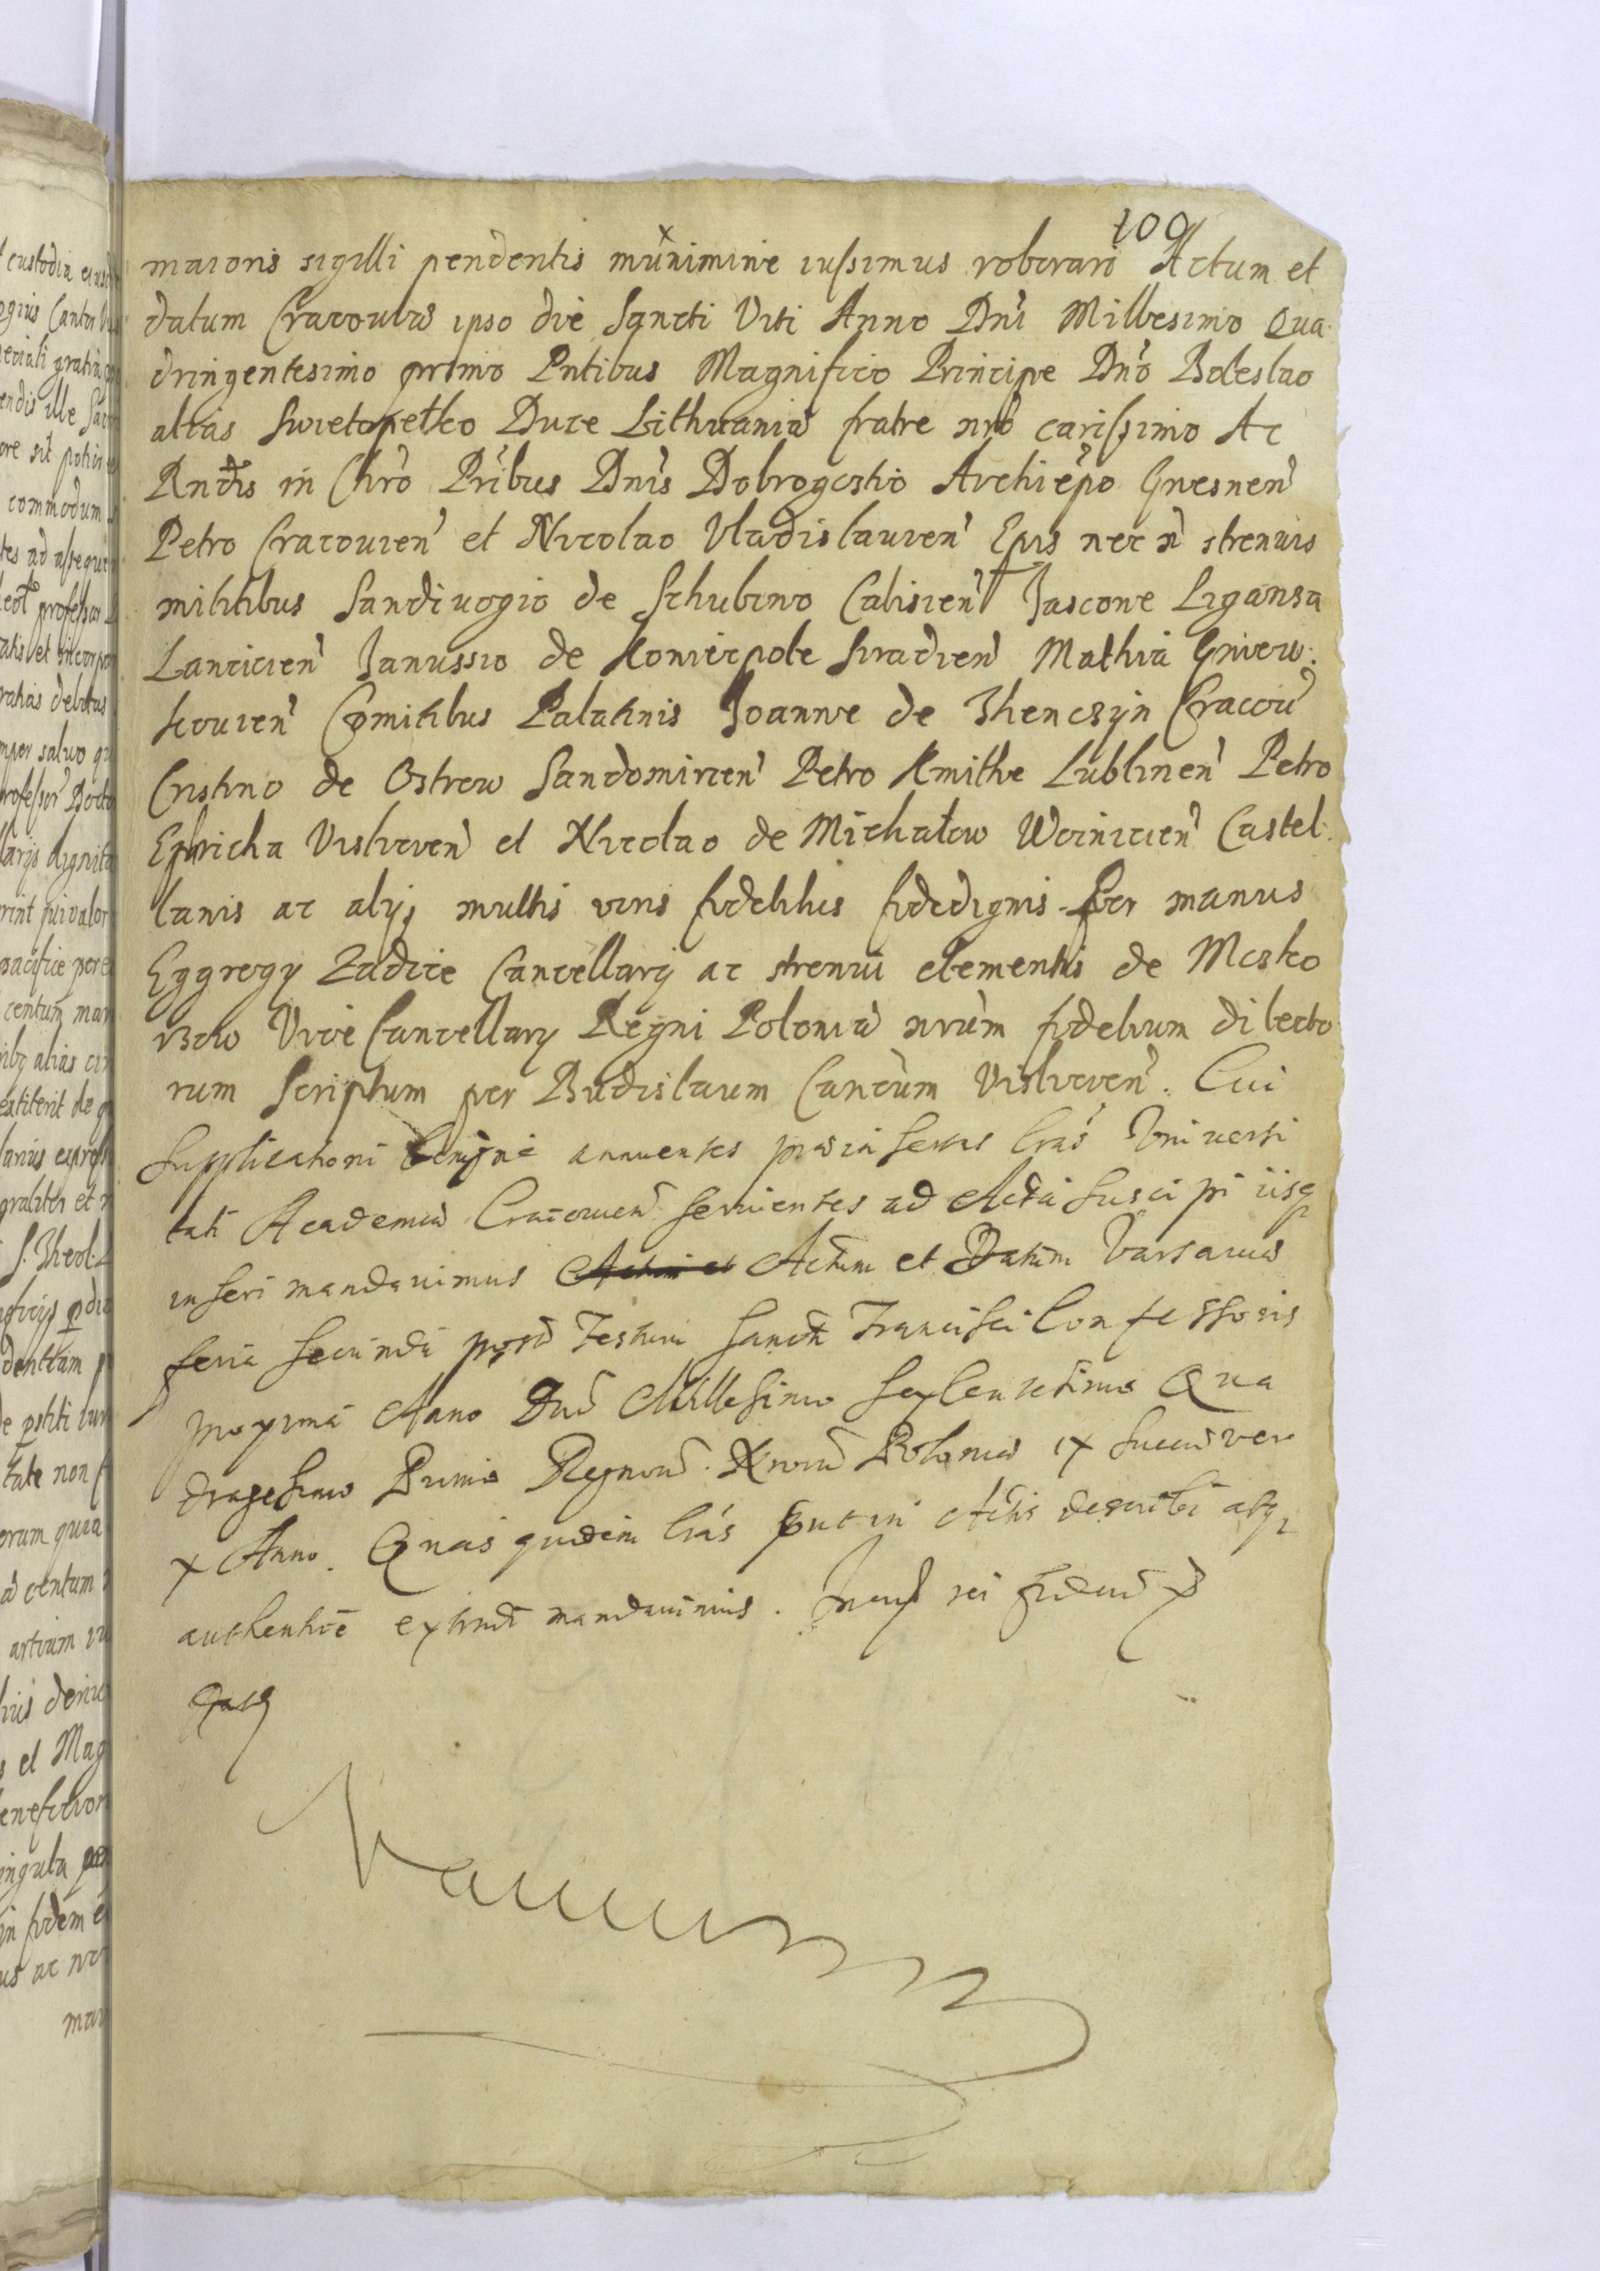 100
maioris sigilli pendentis munimine iussimus roborari Actum et
datum Cracouiæ ipso die Sancti Viti Anno Dni Millesimo Qua
dringentesimo primo Pntibus Magnifico Principe Dno Boleslao
alias Swietopelko Duce Lithuaniæ fratre nro carissimo Ac
Rndis in Chro Pribus Dnis Dobrogostio Archiepo Gnesnen
Petro Cracouien et Nicolao Vladislauien Epis nec n strenuis
militibus Sandiuogio de Schubino Calisien Jascone Liganza
Lancicien Janussio de Koniecpole Siradien Mathia Gniew:
kouien Comitibus Palatinis Joanne de Thenczyn Cracou
Cristino de Ostrow Sandomirien Petro Kmithe Lublinen Petro
Visliceien et Nicolao de Michałow Woinicien Castel:
lanis ac alijs multis viris fidelibus fidedignis Per manus
Eggregy Zadice Cancellarij ac strenui clementis de Mosko
rzow Vice Cancellary Regni Poloniæ nrum fidelium dilecto
rum Scriptum per Budislaum Cancum Visliceuen. Cui
Supplicationi benigne annuentes præinsertas lras Vniuersi
tati Academiæ Cracouien seruientes ad Acta suscipi iisq
inseri mandauimus Actum et Actum et Datum Varsauiæ
feria secunda post Festum Sancti Francisci Confessoris
proxima Anno Dni Millesimo Sexcentesimo Qua
dragesimo Primo Regnorum Nrorum Poloniæ ix Sueciæ vero
x Anno. Quas quidem lras Actis describi atq
authentice extradi mandauimus. rei fidem